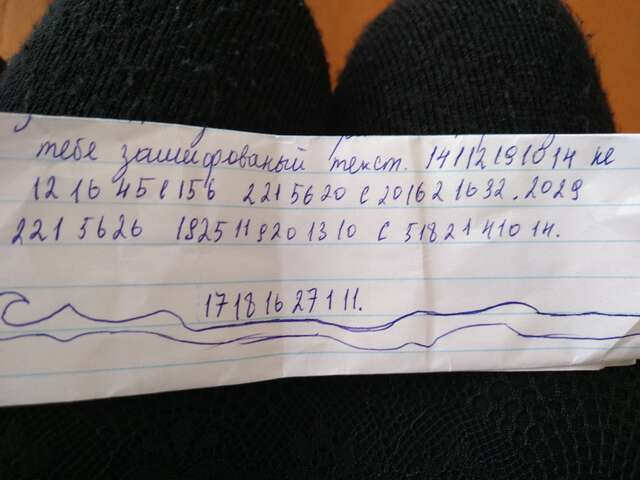 тебе зашифрованый текст. 14112191014 не
12 16 45 1 15 6 2215620 с 2016216 32. 2029
221 5626 1925119201310 с 518214 10 14.
17181627111.